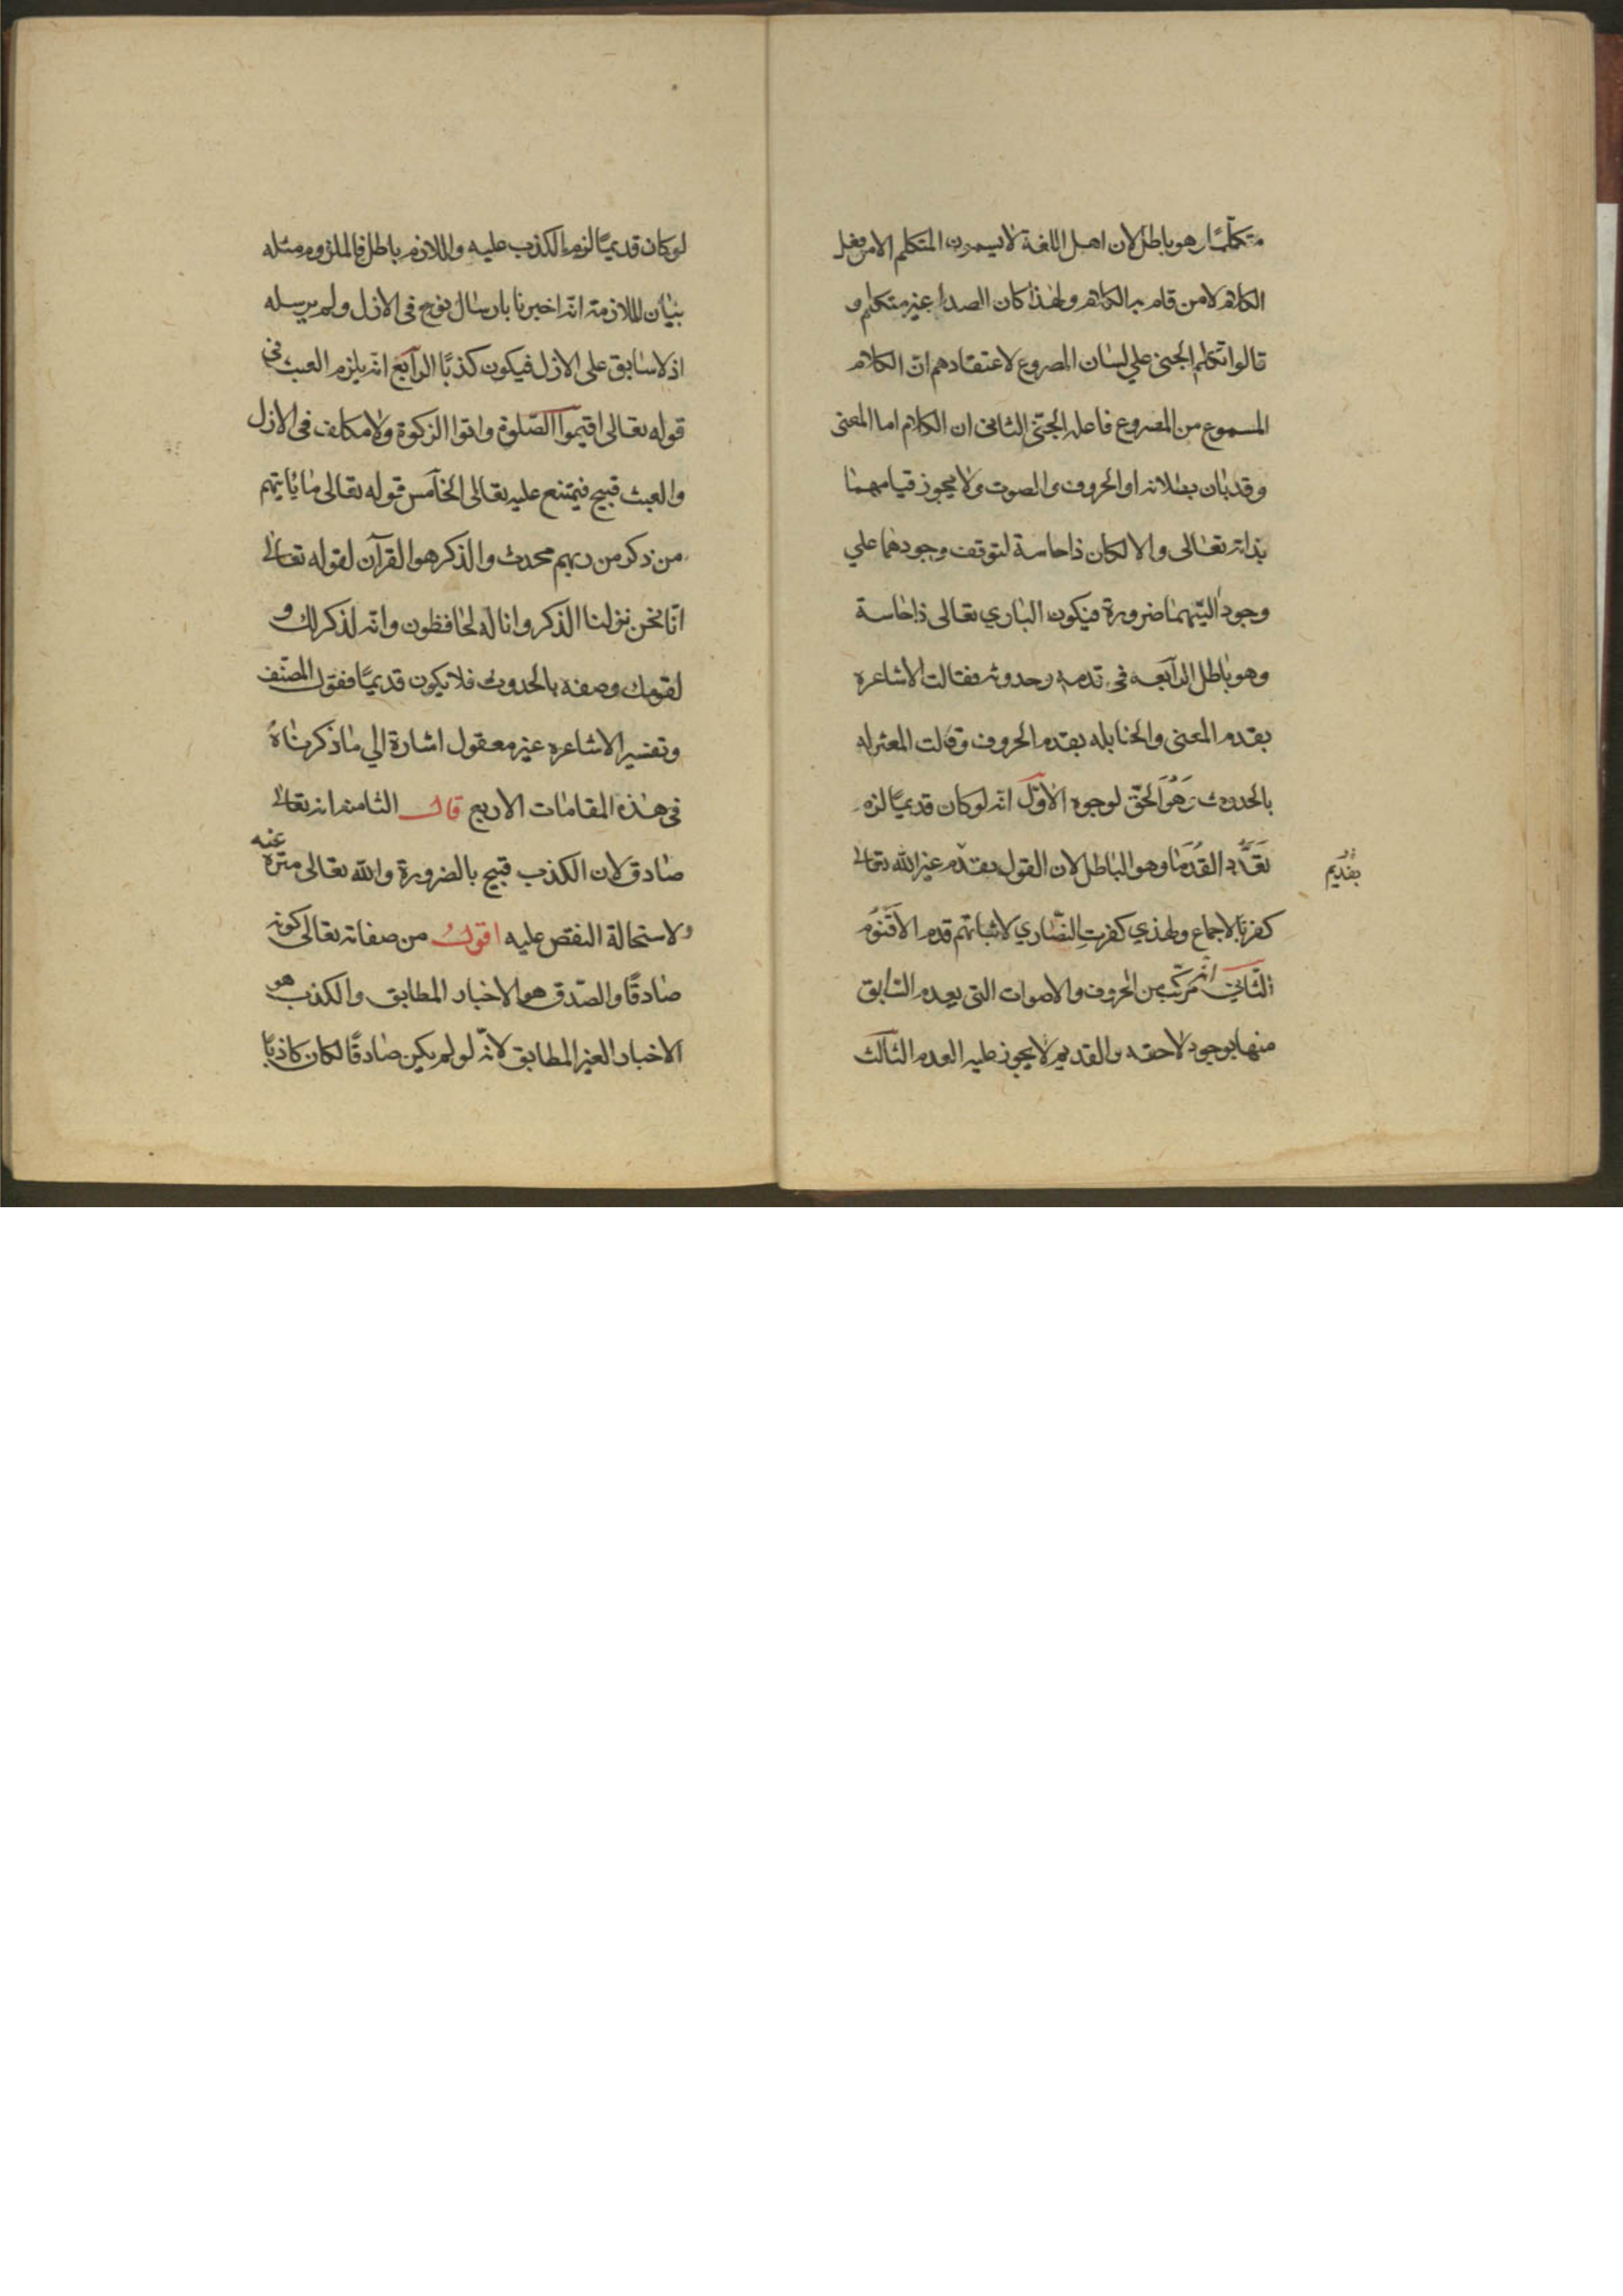 متكلّمًا وهو باطل لان اهل اللغة لا يسمون المتكلم الا من فعل
الكلام لا من قام به الكلام ولهذا كان الصدا غير متكلم و
قالوا تكلم الجنى علي لسان المصروع لاعتقادهم انّ الكلام
المسموع من المصروع فاعله الجنّى الثانى ان الكلام اما المعنى
وقد بان بطلانه او الحروف و الصوت ولا يجوز قيامهما
بذاته تعالى والا لكان ذا حاسة لتوقف وجودهما علي
وجود اليتهما ضرورة فيكون الباري تعالى ذا حاسة
وهو باطل الرابعه فى قدمه وحدوثه فقالت الاشاعرة
بقدم المعنى والحنابله بقدم الحروف وقالت المعتزله
بالحدوث وَهُوَ الحقّ لوجوه الاوّل انه لو كان قديمًا لزم
تَعَدُّد القُدَمَا وهو الباطل لان القول بقدم غير الله تعالى
بقديم
كفر بالاجماع ولهذي كفرت النصّاري لاثباتهم قدم الاقنوم
الثّاني انّه مركّب من الحروف والاصوات التى يعدم السّابق
منها بوجود لاحقه والقديم لا يجوز عليه العدم الثالث
لو كان قديمًا لزم الكذب عليه واللازم باطل فالملزوم مثله
بيان الملازمة انّه اخبرنا بارسال نوح فى الازل ولم يرسله
اذ لا سابق على الازل فيكون كذبًا الرابع انّه يلزم العبث في
قوله تعالى اقيموا الصّلوة واتوا الزكوة ولا مكلف فى الازل
والعبث قبيح فيمتنع عليه تعالى الخامس قوله تعالى ما ياتيهم
من ذكر من ربهم محدث والذكر هو القرآن لقوله تعالى
انّا نحن نزلنا الذكر وانا له لحافظون وانّه لذكر لك و
لقومك وصفه بالحدوث فلا يكون قديمًا فقول المصّنف
وتفسير الاشاعره غير معقول اشارة الي ما ذكرناهُ
فى هذه المقامات الاربع قال الثامنه انه تعالى
صادق لان الكذب قبيح بالضرورة والله تعالى منزه عنه
ولاستحالة النقص عليه اقول من صفاته تعالى كونه
صادقًا والصّدق هو الاخبار المطابق والكذب هو
الاخبار الغير المطابق لانّه لو لم يكن صادقًا لكان كاذبًا